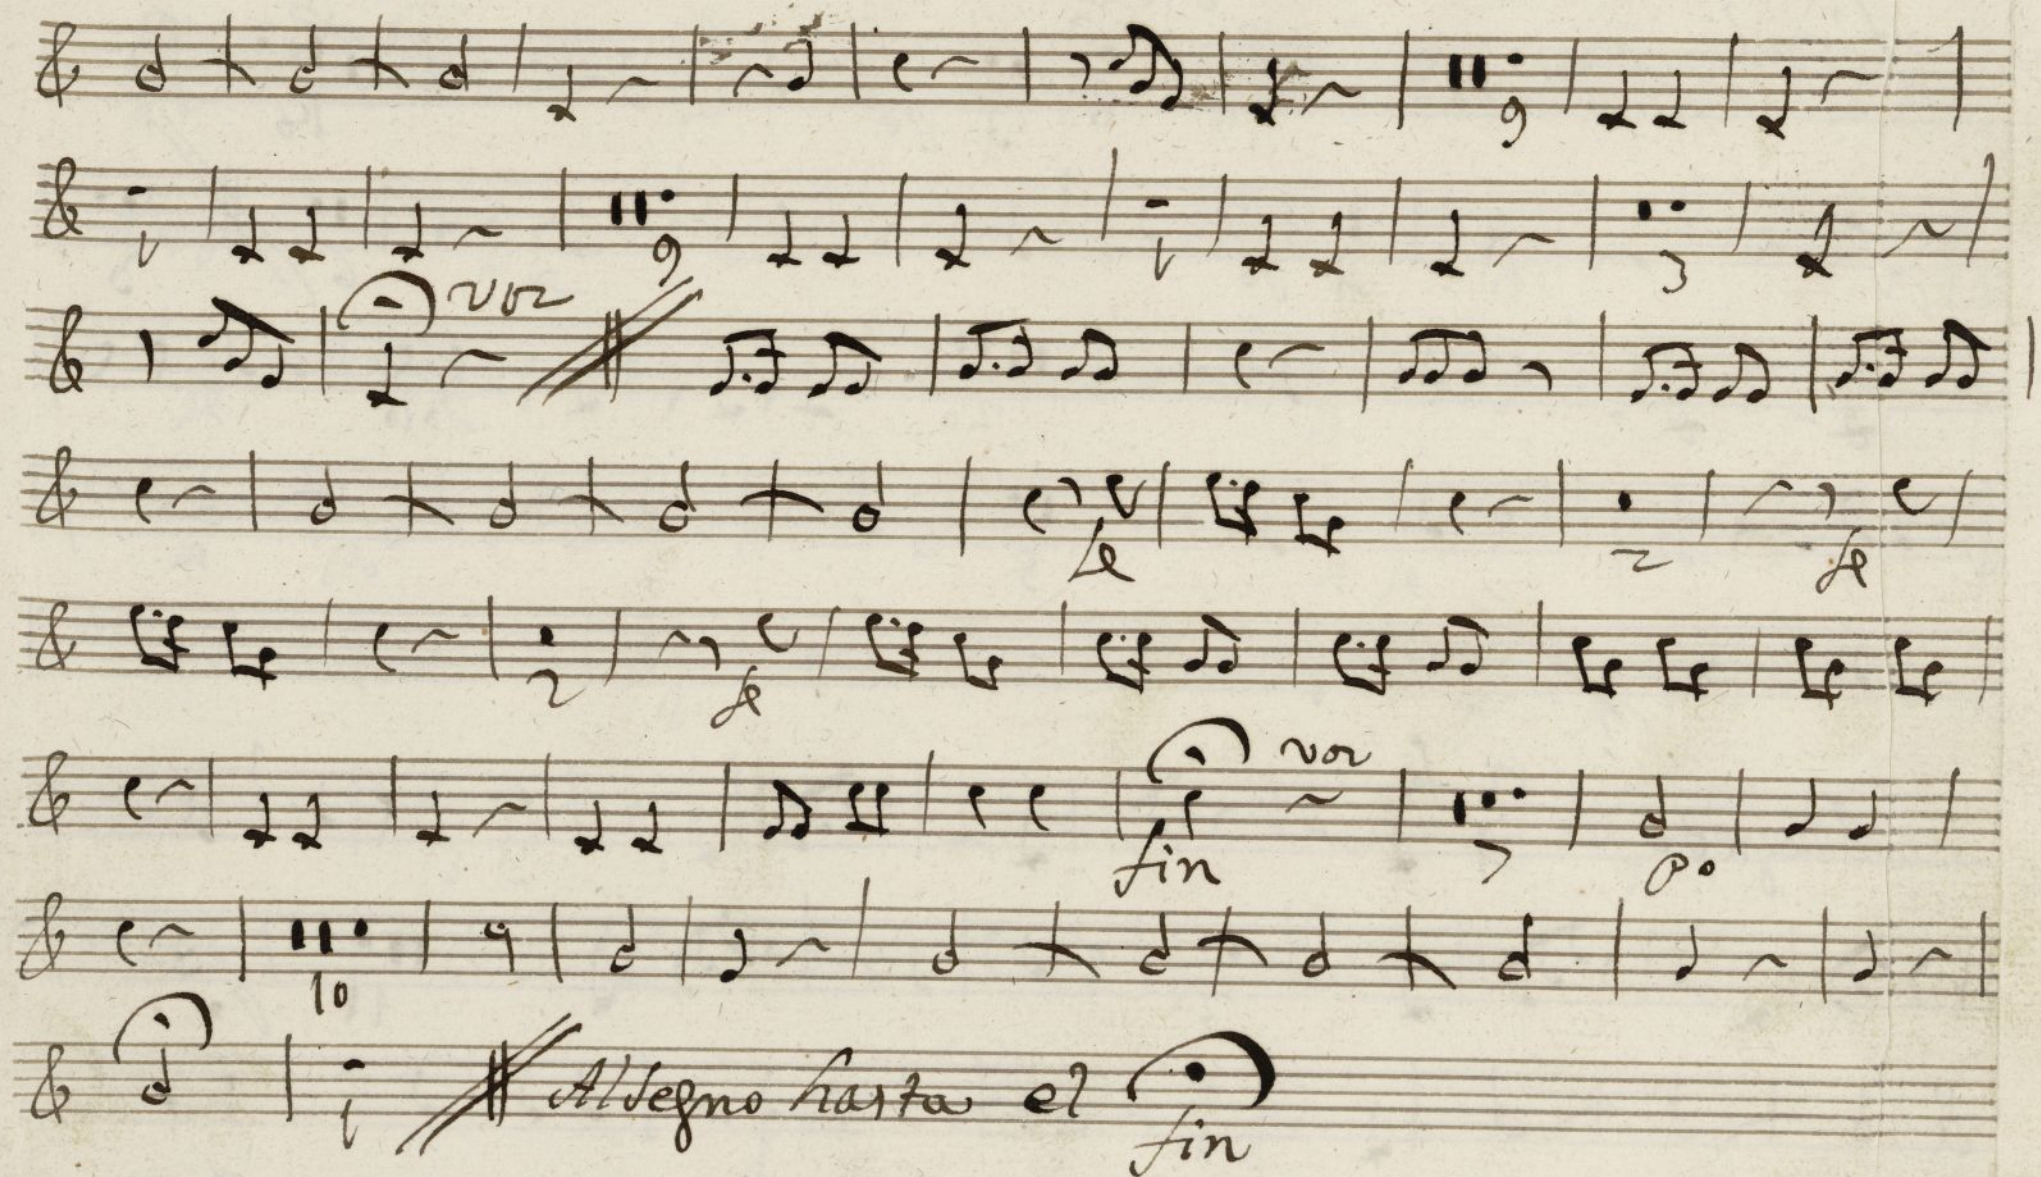 9
1 9 1 3
voz
fe 2 fe
2 fe
voz
fin 7 po
10
1 Al Segno hasta el
fin